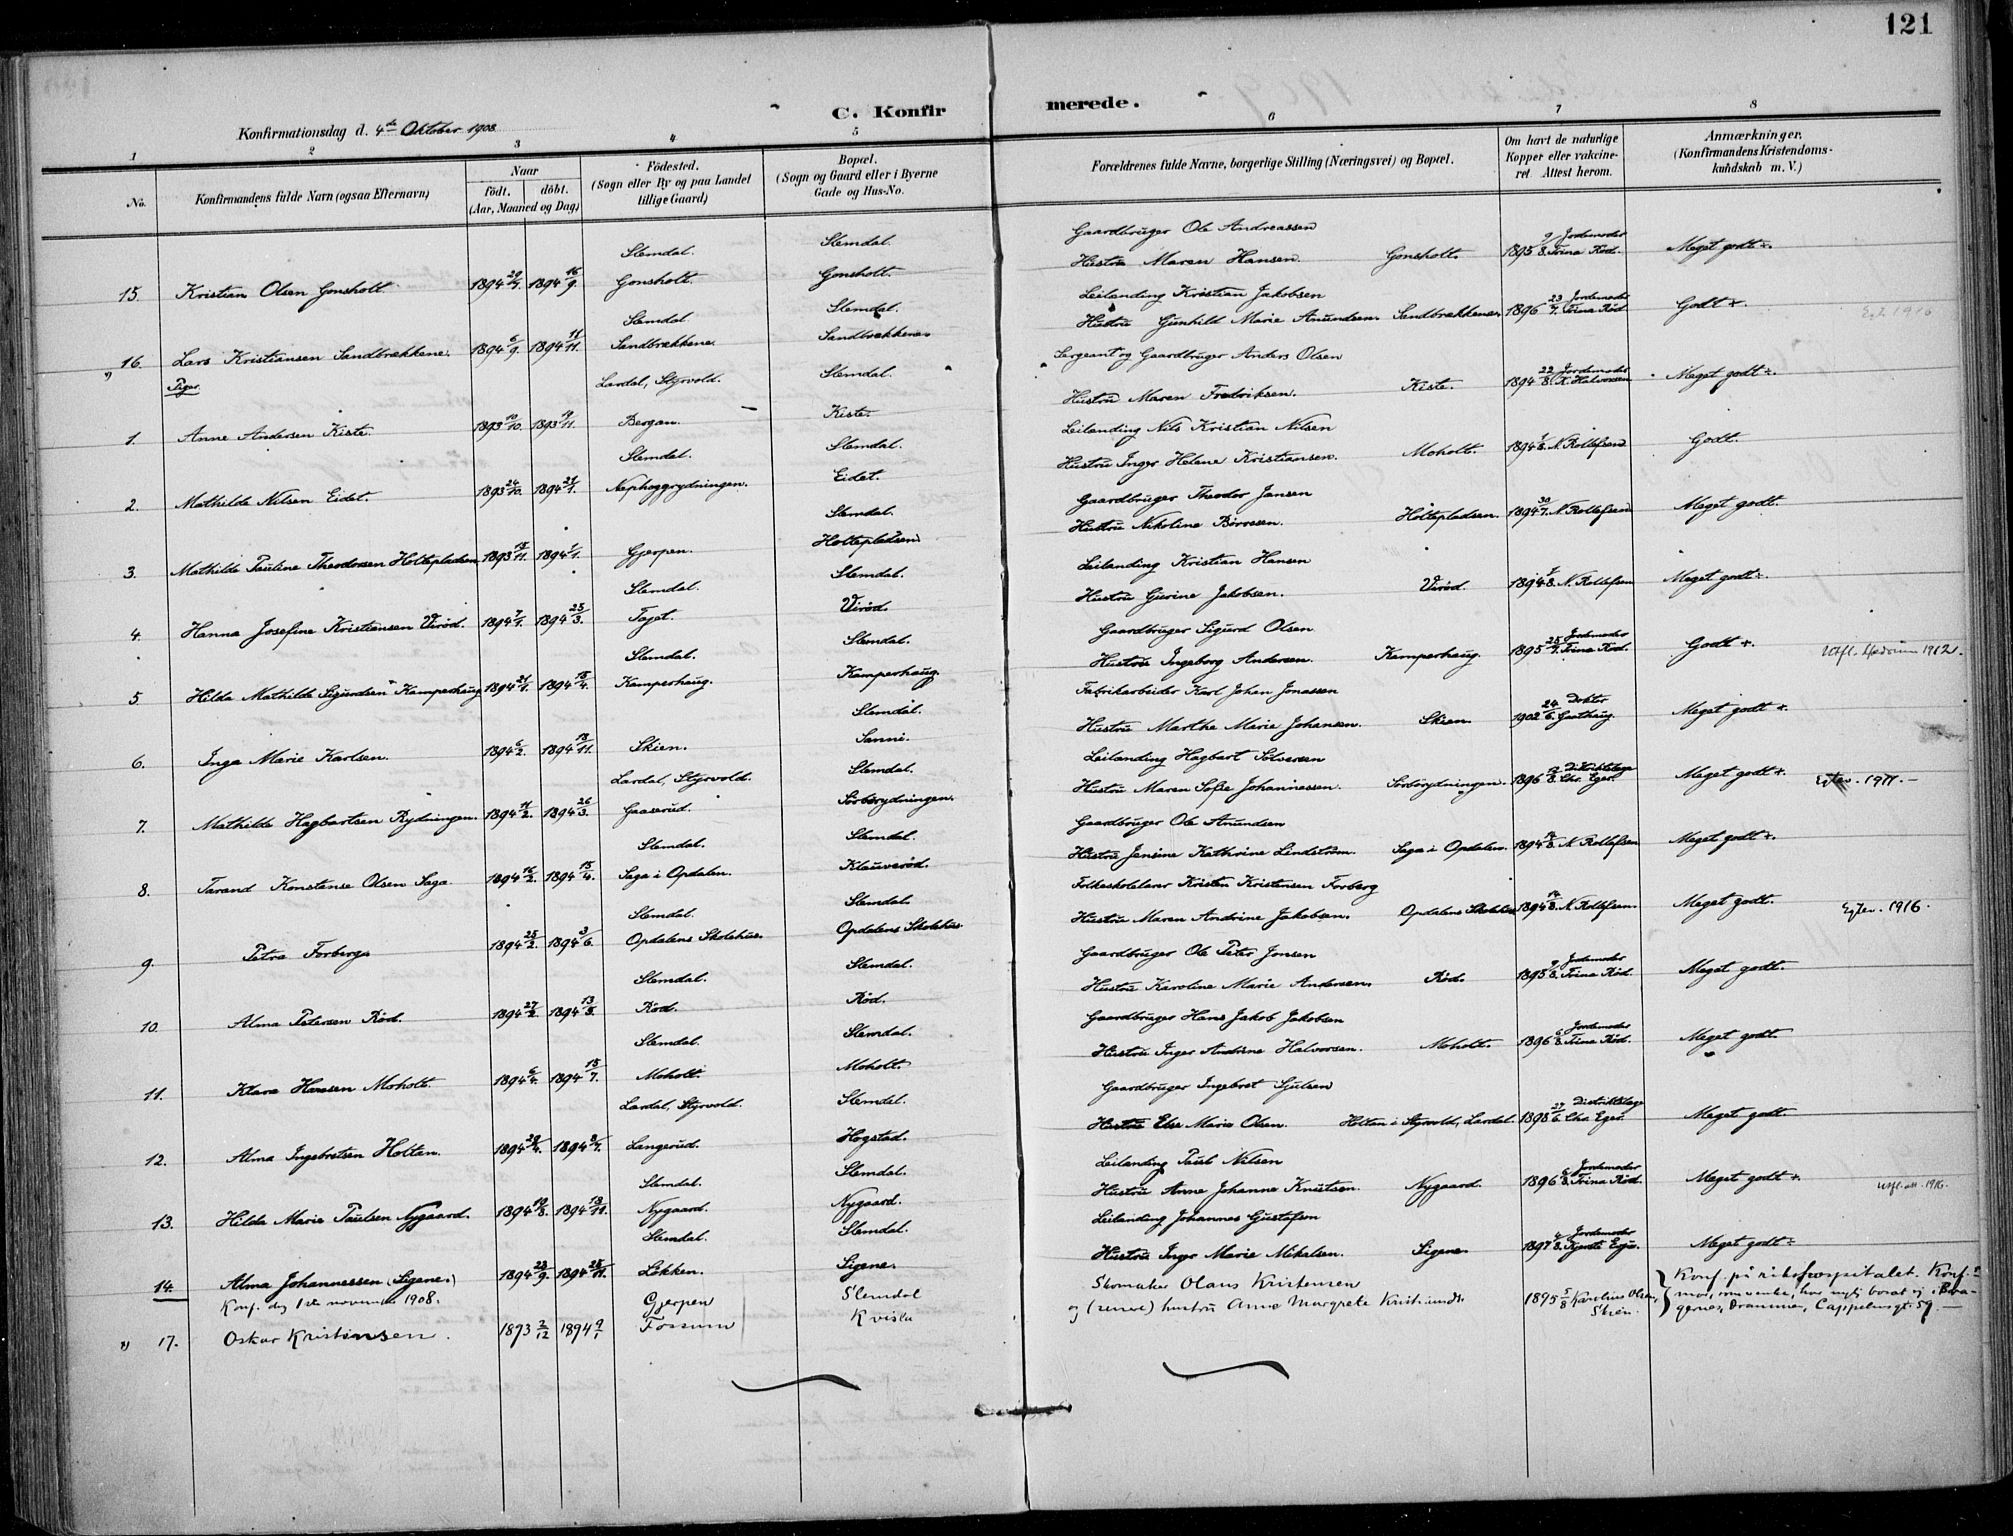 121
C. Konfirmerede.
Konfirmationsdag d. 4de Oktober 1908
1 2 3 4 5 6 7 8
No. Konfirmandens fulde Navn (ogsaa Efternavn) Naar født. døbt. (Aar, Maaned og Dag) Födested. (Sogn eller By og paa Landet tillige Gaard) Bopæl. (Sogn og Gaard eller i Byerne Gade og Hus-No. Forældrenes fulde Navne, borgerlige Stilling (Næringsvei) og Bopæl. Om havt de naturlige Kopper eller vakcineret. Attest herom. Anmærkninger. (Konfirmandens Kristendomskundskab m. V.)
Slemdal. Slemdal. Gaardbruger Ole Andreassen
15. Kristian Olsen Gonsholt. 1894 1894 16/9. Gonsholt. Gonsholt. Hustru Maren Hansen. Gonsholt. 1895 9/8. Jordemoder Trina Rød. Meget godt ÷.
Slemdal. Slemdal. Leilending Kristian Jakobsen
16. Lars Kristiansen Sandbrækkene. 1894 6/9. 1894 11/11. Sandbrækkene. Sandbrækkene. Hustru Gunhild Marie Amundsen. Sandbrækkene. 1896 23/7. Jordemoder Trina Rød. Godt +. 1916
Piger.
Lardal, Styrvold. Slemdal. Sergeant og Gaardbruger Anders Olsen
1. Anne Andersen Kiste. 1893 10/10. 1893 19/11. Bergan. Kiste. Hustru Maren Fredriksen. Kiste. 1894 22/8. Jordemoder K. Halvorsen Meget godt ÷.
Slemdal. Slemdal. Leilending Nils Kristian Nilsen
2. Mathilde Nilsen Eidet. 1893 24/10. 1894 21/1. Nephøgrydningen. Eidet. Hustru Inger Helene Kristiansen. Moholt. 1894 N. Rollefsen Godt.
Slemdal. Gaardbruger Theodor Jansen
3. Mathilde Pauline Theodorsen Holtepladsen 1893 15/11. 1894 1/1. Gjerpen. Holtepladsen Hustru Nikoline Børresen. Holtepladsen. 1894 30/7. N. Rollefsen Meget godt.
Slemdal. Slemdal. Leilending Kristian Hansen
4. Hanna Josefine Kristiansen Virød. 1894 7/1. 1894 25/3. Tajet. Virød. Hustru Gurine Jakobsen. Virød. 1894 N. Rollefsen Meget godt ÷.
Slemdal. Slemdal. Gaardbruger Sigurd Olsen
5. Hilda Mathilde Sigurdsen Kamperhaug 1894 21/1. 1894 15/4. Kamperhaug. Kamperhaug. Hustru Ingeborg Andersen. Kamperhaug. 1895 25/7. Jordemoder Trina Rød. Godt +. Utfl. Hedrum 1912.
Slemdal. Fabrikarbeider Karl Johan Jonassen
6. Inga Marie Karlsen. 1894 6/2. 1894 18/11. Skien. Sanni. Hustru Marthe Marie Johansen. Skien. 1902 24/6. Doktor Meget godt +.
Lardal, Styrvold. Slemdal. Leilending Hagbart Sølversen
7. Mathilde Hagbartsen Rydningen. 1894 11/2. 1894 26/3. Gaaserud. Sørbørydningen. Hustru Maren Sofie Johannessen. Sørbørydningen. 1896 Distriktslæge Chr. Eger. Meget godt +. Egtev. 1911. —
Slemdal. Slemdal. Gaardbruger Ole Amundsen
8. Tarand Konstanse Olsen Saga. 1894 16/2. 1894 15/4. Saga i Opdalen. Klauverød. Hustru Jensine Kathrine Lindstrøm. Saga i Opdalen. 1894 14/8. N. Rollefsen Meget godt +.
Slemdal. Slemdal. Folkeskolelærer Kristen Kristensen Forberg
9. Petra Forberg 1894 25/2. 1894 3/6. Opdalens Skolehus. Opdalens Skolehus. Hustru Maren Andrine Jakobsen. Opdalens Skolehus 1894 14/8. N. Rollefsen. Meget godt. Egtev. 1916.
Slemdal. Slemdal. Gaardbruger Ole Peter Jonsen
10. Alma Petersen Rød. 1894 27/2. 1894 13/5. Rød. Rød. Hustru Karoline Marie Andersen. Rød. 1895 9/8. Jordemoder Trina Rød. Meget godt.
Slemdal. Slemdal. Gaardbruger Hans Jakob Jakobsen
11. Klara Hansen Moholt. 1894 6/4. 1894 15/7. Moholt. Moholt. Hustru Inger Andrine Halvorsen. Moholt. 1896 6/8. Jordemoder Trina Rød. Meget godt.
Lardal, Styrvold. Slemdal. Gaardbruger Ingebret Sjulsen
12. Alma Ingebretsen Holtan. 1894 29/4. 1894 Langerud. Hogstad. Hustru Else Maria Olsen. Holtan i Styrvold, Lardal. 1898 27/6. Distriktslæge Chr. Eger. Meget godt
Slemdal. Slemdal. Leilending Paul Nilsen
13. Hilda Marie Paulsen Nygaard. 1894 19/8. 1894 18/11. Nygaard. Nygaard. Hustru Anne Johanne Knutsen. Nygaard. 1896 6/8. Jordemoder Trina Rød. Meget godt +. Utfl.att. 1916.
Slemdal. Slemdal. Leilending Johannes Gustafsen
14. Alma Johannessen (Sigene.) 1894 23/9. 1894 25/11. Løkken. Sigene. Hustru Inger Marie Mikelsen. Sigene. 1897 Jordemoder Meget godt ÷
Konf. dag 1ste november 1908. Gjerpen Slemdal Skomaker Olaus Kristensen
17. Oskar Kristensen. 1893 2/12 1894 9/1 Fossum Kvisla og (senere) hustru Anne Margrete Kristiansdt. 1895 5/8 Karoline Olsen, Skien. Konf. på rikshospitalet.
Drammen, Cappelensgt 59. —